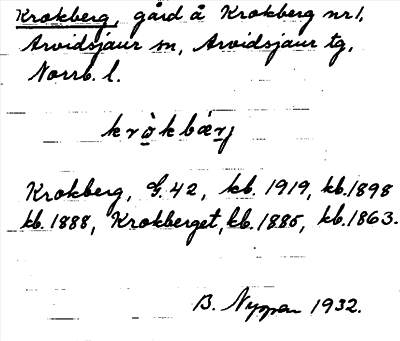 Krokberg, gård å Krokberg nr 1,
Arvidsjaur sn, Arvidsjaur tg,
Norrb. l.
kròkbærj
Krokberg, G. 42, kb. 1919, kb. 1898
kb. 1888, Krokberget, kb. 1885, kb. 1863.
B. Nyman 1932.